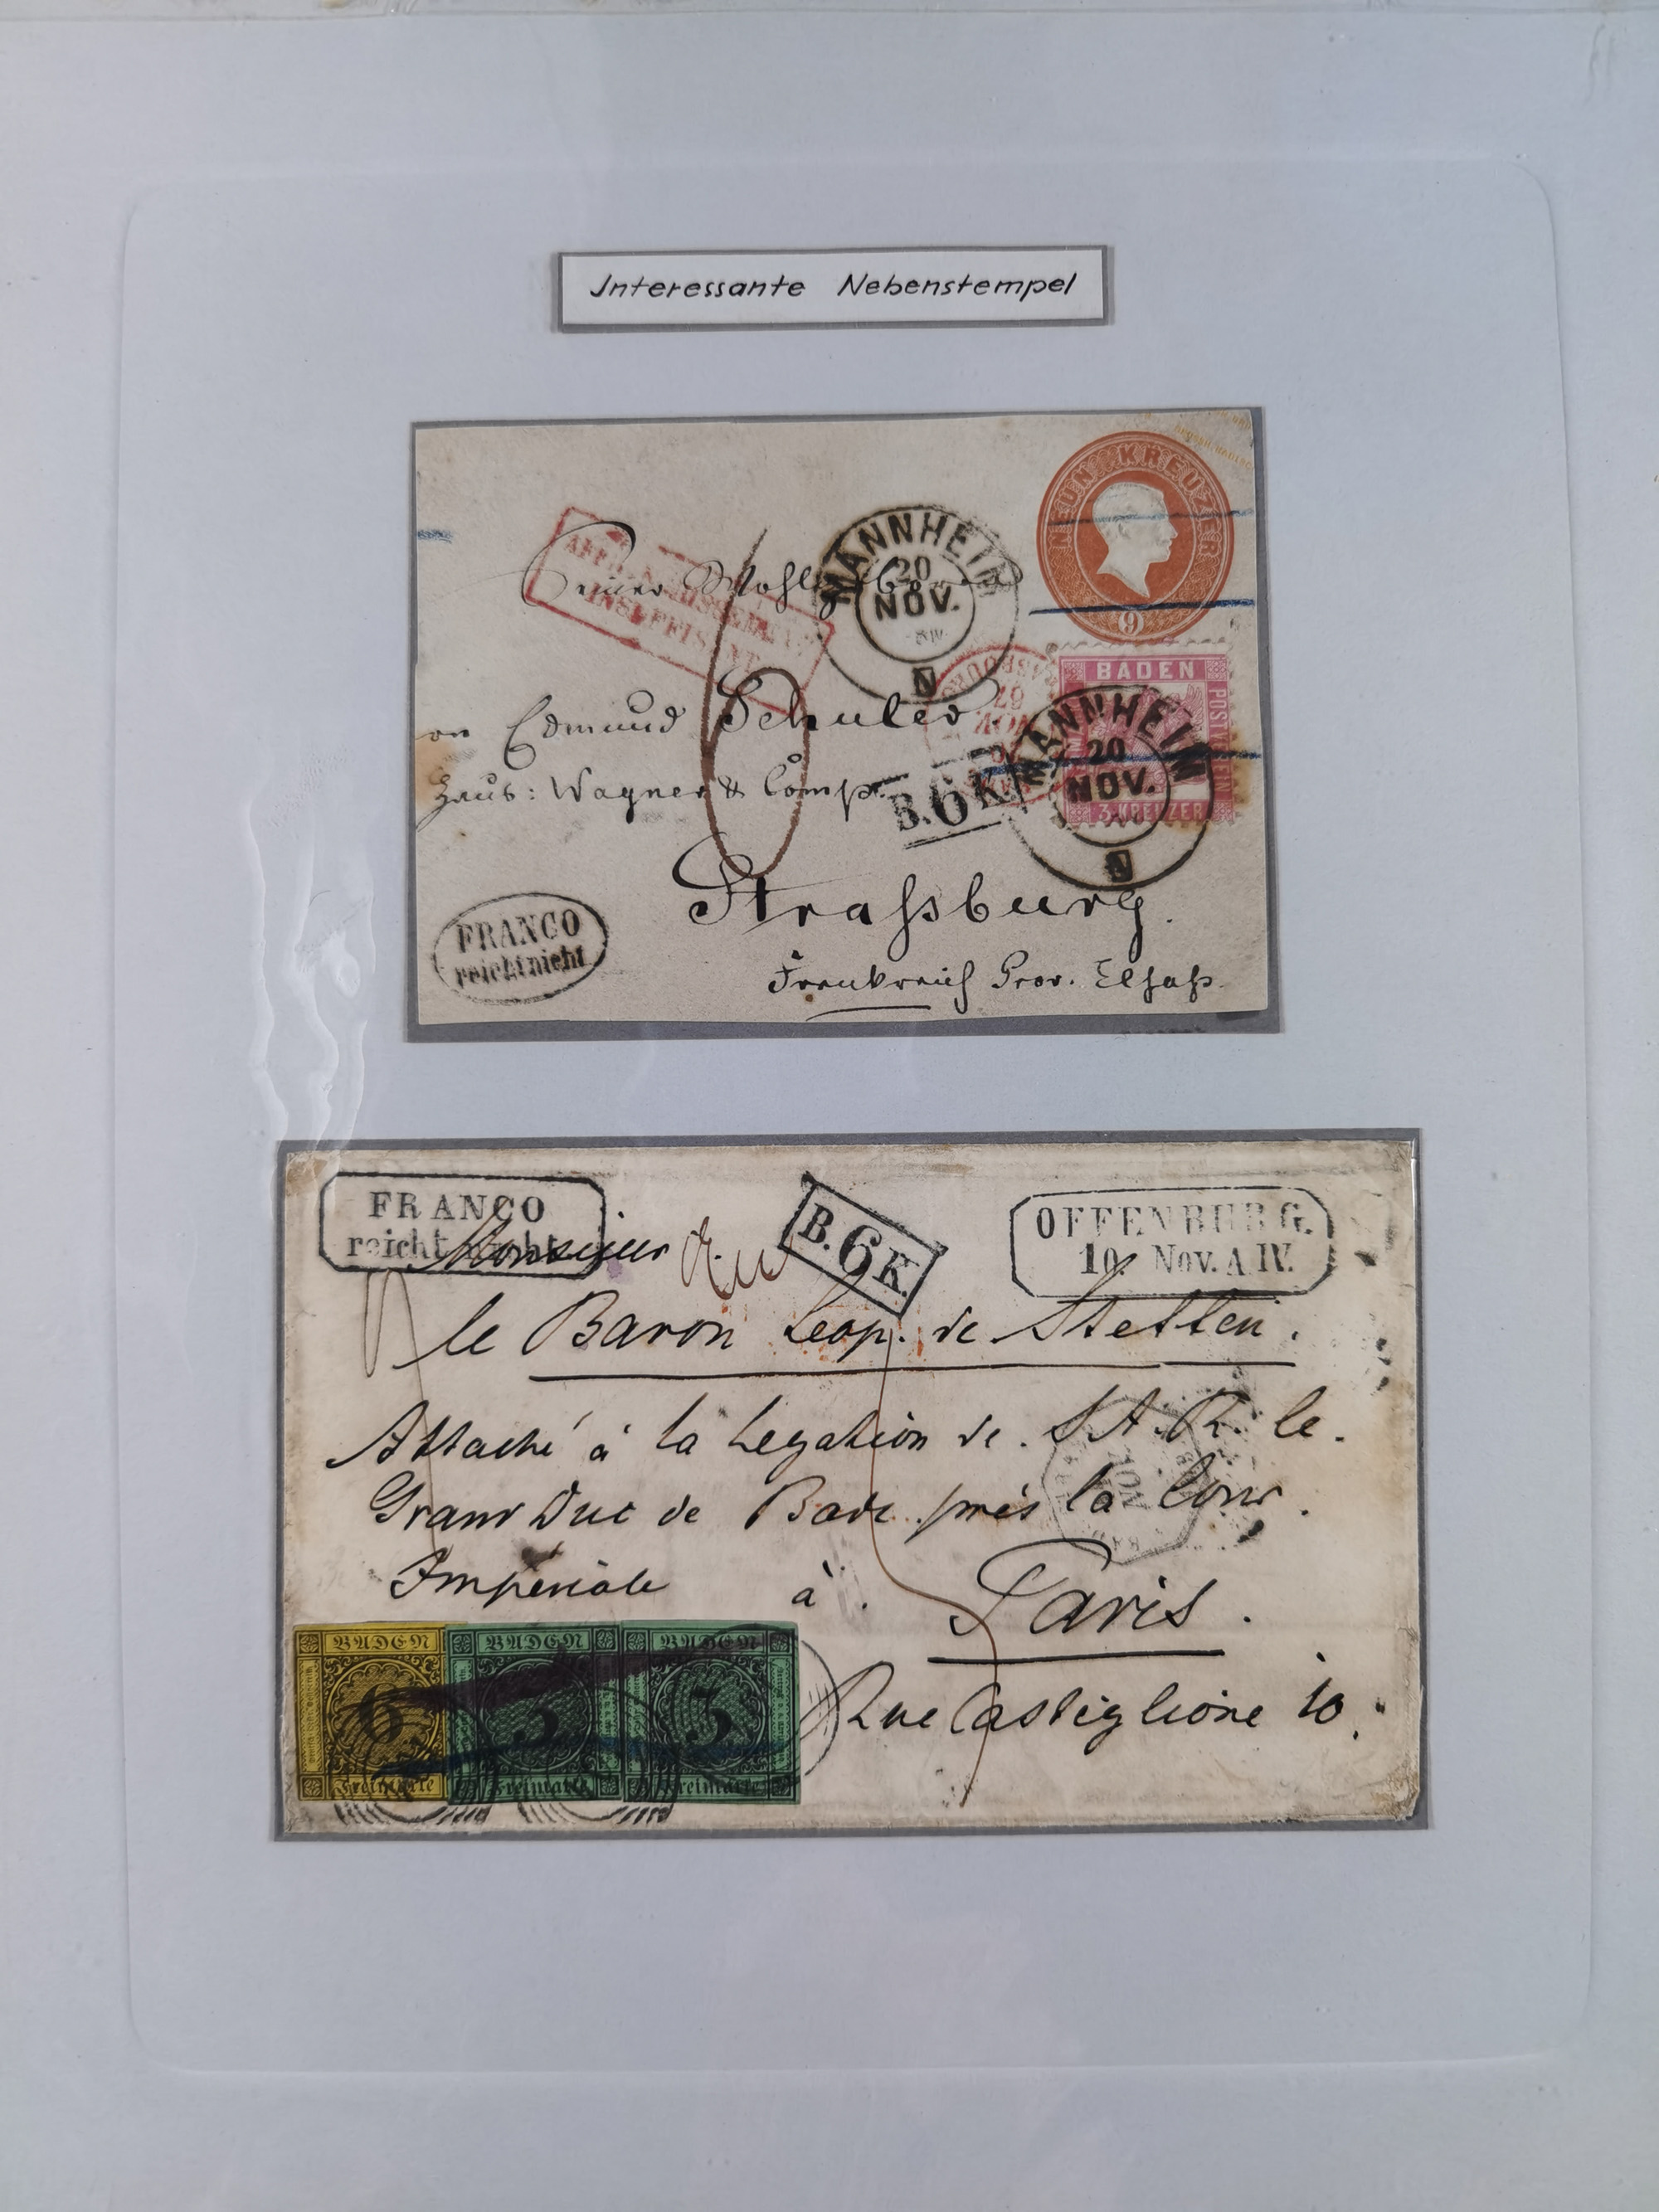 Interessante Nebenstempel
NEUN KREUZER
9
MANNHEIM
20
NOV.
N
BADEN
POSTVEREIN
3 KREUZER
MANNHEIM
20
NOV.
N
67
NOV
Edmund Schuler
Haus: Wagner & Comp.
B.6K.
Straßburg.
Frankreich Prov. Elsaß.
FRANCO
reicht nicht
FRANCO
reicht nicht
B.6K.
OFFENBURG.
10. Nov. A. IV.
Monsieur
le Baron Leop. de Stetten.
Attaché à la Legation de. S. A. R. le.
Grand Duc de Bade près la Cour.
Impériale à. Paris.
Rue Castiglione 10.
BADEN
6
Freimarke
BADEN
3
Freimarke
BADEN
3
Freimarke